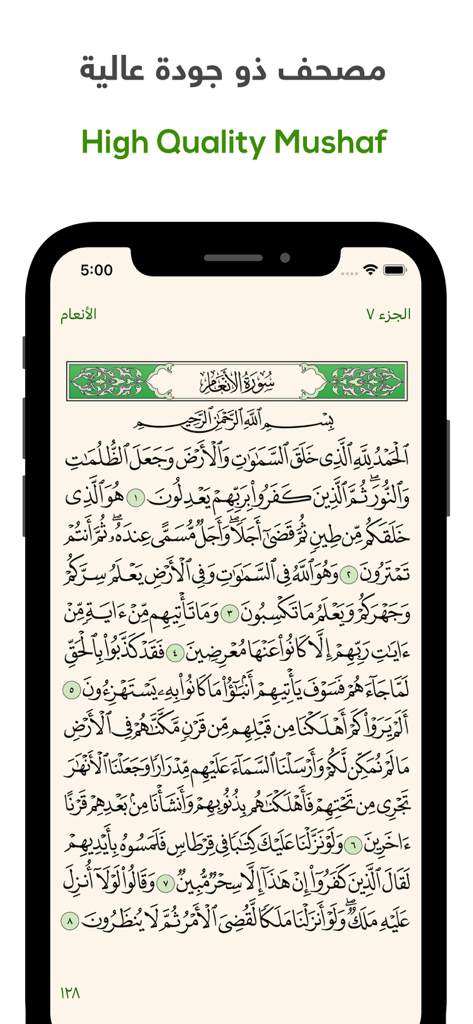 مصحف ذو جودة عالية
High Quality Mushaf
5:00
الجزء ٧
الأنعام
سُورَةُ الأَنعَامِ
بِسْمِ ٱللَّهِ ٱلرَّحْمَٰنِ ٱلرَّحِيمِ
ٱلْحَمْدُ لِلَّهِ ٱلَّذِى خَلَقَ ٱلسَّمَٰوَٰتِ وَٱلْأَرْضَ وَجَعَلَ ٱلظُّلُمَٰتِ
وَٱلنُّورَ ۖ ثُمَّ ٱلَّذِينَ كَفَرُوا۟ بِرَبِّهِمْ يَعْدِلُونَ ١ هُوَ ٱلَّذِى
خَلَقَكُم مِّن طِينٍ ثُمَّ قَضَىٰٓ أَجَلًا ۖ وَأَجَلٌ مُّسَمًّى عِندَهُۥ ۖ ثُمَّ أَنتُمْ
تَمْتَرُونَ ٢ وَهُوَ ٱللَّهُ فِى ٱلسَّمَٰوَٰتِ وَفِى ٱلْأَرْضِ يَعْلَمُ سِرَّكُمْ
وَجَهْرَكُمْ وَيَعْلَمُ مَا تَكْسِبُونَ ٣ وَمَا تَأْتِيهِم مِّنْ ءَايَةٍ مِّنْ
ءَايَٰتِ رَبِّهِمْ إِلَّا كَانُوا۟ عَنْهَا مُعْرِضِينَ ٤ فَقَدْ كَذَّبُوا۟ بِٱلْحَقِّ
لَمَّا جَآءَهُمْ فَسَوْفَ يَأْتِيهِمْ أَنۢبَٰٓؤُا۟ مَا كَانُوا۟ بِهِۦ يَسْتَهْزِءُونَ ٥
أَلَمْ يَرَوْا۟ كَمْ أَهْلَكْنَا مِن قَبْلِهِم مِّن قَرْنٍ مَّكَّنَّٰهُمْ فِى ٱلْأَرْضِ
مَا لَمْ نُمَكِّن لَّكُمْ وَأَرْسَلْنَا ٱلسَّمَآءَ عَلَيْهِم مِّدْرَارًا وَجَعَلْنَا ٱلْأَنْهَٰرَ
تَجْرِى مِن تَحْتِهِمْ فَأَهْلَكْنَٰهُم بِذُنُوبِهِمْ وَأَنشَأْنَا مِنۢ بَعْدِهِمْ قَرْنًا
ءَاخَرِينَ ٦ وَلَوْ نَزَّلْنَا عَلَيْكَ كِتَٰبًا فِى قِرْطَاسٍ فَلَمَسُوهُ بِأَيْدِيهِمْ
لَقَالَ ٱلَّذِينَ كَفَرُوٓا۟ إِنْ هَٰذَآ إِلَّا سِحْرٌ مُّبِينٌ ٧ وَقَالُوا۟ لَوْلَآ أُنزِلَ
عَلَيْهِ مَلَكٌ ۖ وَلَوْ أَنزَلْنَا مَلَكًا لَّقُضِىَ ٱلْأَمْرُ ثُمَّ لَا يُنظَرُونَ ٨
١٢٨